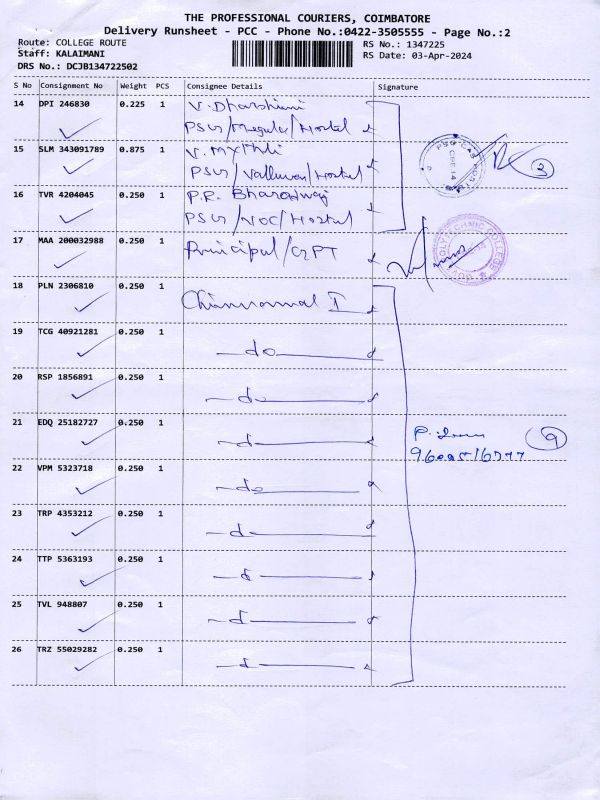 THE PROFESSIONAL COURIERS, COIMBATORE
Delivery Runsheet - PCC - Phone No.:0422-3505555 - Page No.:2
Route: COLLEGE ROUTE
Staff: KALAIMANI
DRS No.: DCJB134722502
RS No.: 1347225
RS Date: 03-Apr-2024
S No Consignment No Weight PCS Consignee Details Signature
14 DPI 246830 0.225 1 V. Dharshini
PSG/ /Hostel
15 SLM 343091789 0.875 1 V.
PSG/Valluvar/Hostel
3
16 TVR 4204045 0.250 1 P.R. Bharadwaj
PSG/VOC/Hostel
17 MAA 200032988 0.250 1 Principal/GPT
18 PLN 2306810 0.250 1 I
19 TCG 40921281 0.250 1 do
20 RSP 1856891 0.250 1 d
21 EDQ 25182727 0.250 1 d
P.
9
22 VPM 5323718 0.250 1 do
23 TRP 4353212 0.250 1 d
24 TTP 5363193 0.250 1 d
25 TVL 948807 0.250 1 d
26 TRZ 55029282 0.250 1 d